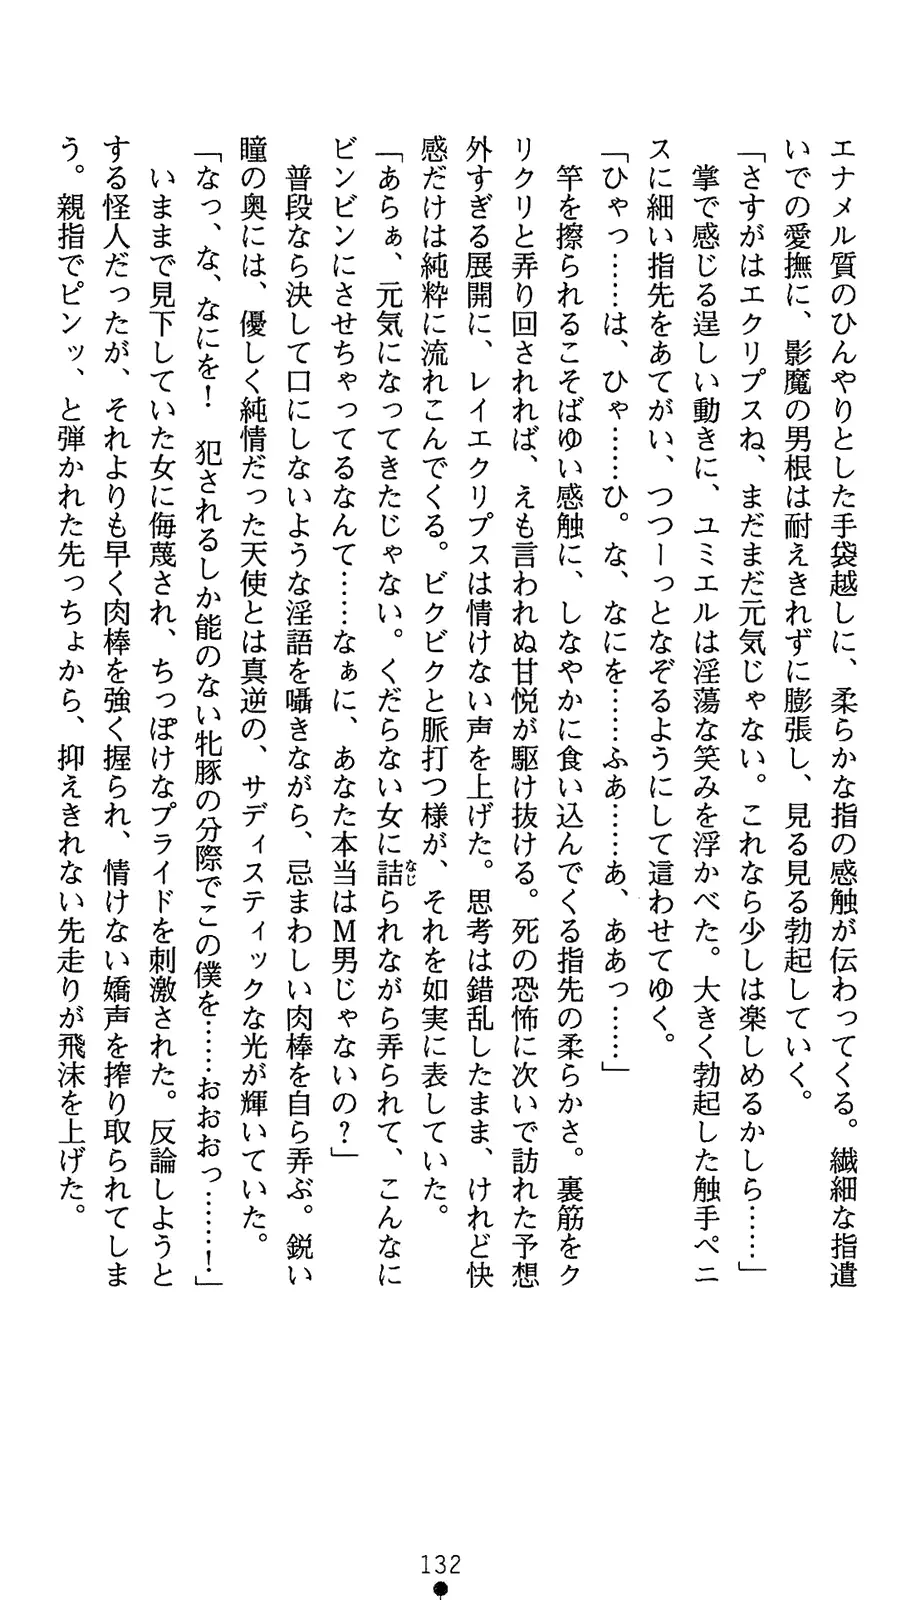 エナメル質のひんやりとした手袋越しに、柔らかな指の感触が伝わってくる。繊細な指遣
いでの愛撫に、影魔の男根は耐えきれずに膨張し、見る見る勃起していく。
「さすがはエクリプスね、まだまだ元気じゃない。これなら少しは楽しめるかしら……」
　掌で感じる逞しい動きに、ユミエルは淫蕩な笑みを浮かべた。大きく勃起した触手ペニ
スに細い指先をあてがい、つつーっとなぞるようにして這わせてゆく。
「ひゃっ……は、ひゃ……ひ。な、なにを……ふあ……あ、ああっ……」
　竿を擦られるこそばゆい感触に、しなやかに食い込んでくる指先の柔らかさ。裏筋をク
リクリと弄り回されれば、えも言われぬ甘悦が駆け抜ける。死の恐怖に次いで訪れた予想
外すぎる展開に、レイエクリプスは情けない声を上げた。思考は錯乱したまま、けれど快
感だけは純粋に流れこんでくる。ビクビクと脈打つ様が、それを如実に表していた。
「あらぁ、元気になってきたじゃない。くだらない女に詰なじられながら弄られて、こんなに
ビンビンにさせちゃってるなんて……なぁに、あなた本当はM男じゃないの？」
　普段なら決して口にしないような淫語を囁きながら、忌まわしい肉棒を自ら弄ぶ。鋭い
瞳の奥には、優しく純情だった天使とは真逆の、サディスティックな光が輝いていた。
「なっ、な、なにを！　犯されるしか能のない牝豚の分際でこの僕を……おおおっ……！」
　いままで見下していた女に侮蔑され、ちっぽけなプライドを刺激された。反論しようと
する怪人だったが、それよりも早く肉棒を強く握られ、情けない嬌声を搾り取られてしま
う。親指でピンッ、と弾かれた先っちょから、抑えきれない先走りが飛沫を上げた。
132